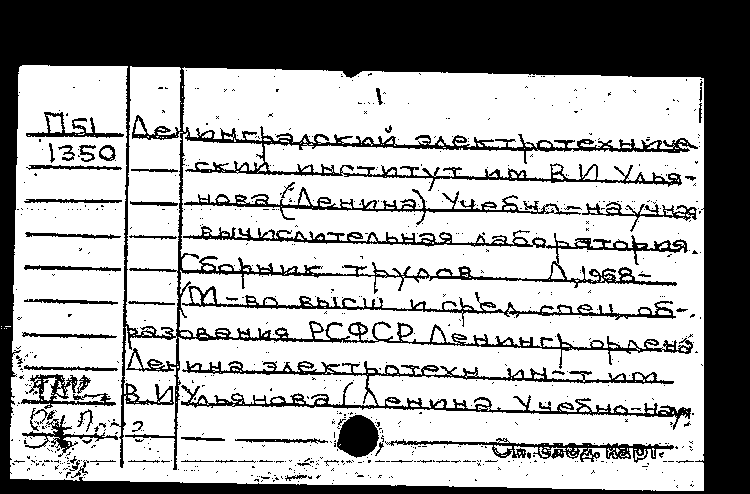 1
П51 Ленинградский электротехниче
1350 ский институт им В.И Улья-
нова (Ленина) Учебно-научная
вычислительная лаборатория.
Сборник трудов Л, 1968-
(М-во высш и сред спец, об-
разования РСФСР. Ленингр ордена
Ленина электротехн ин-т им
В.И Ульянова (Ленина. Учебно-науч
См. след. карт.